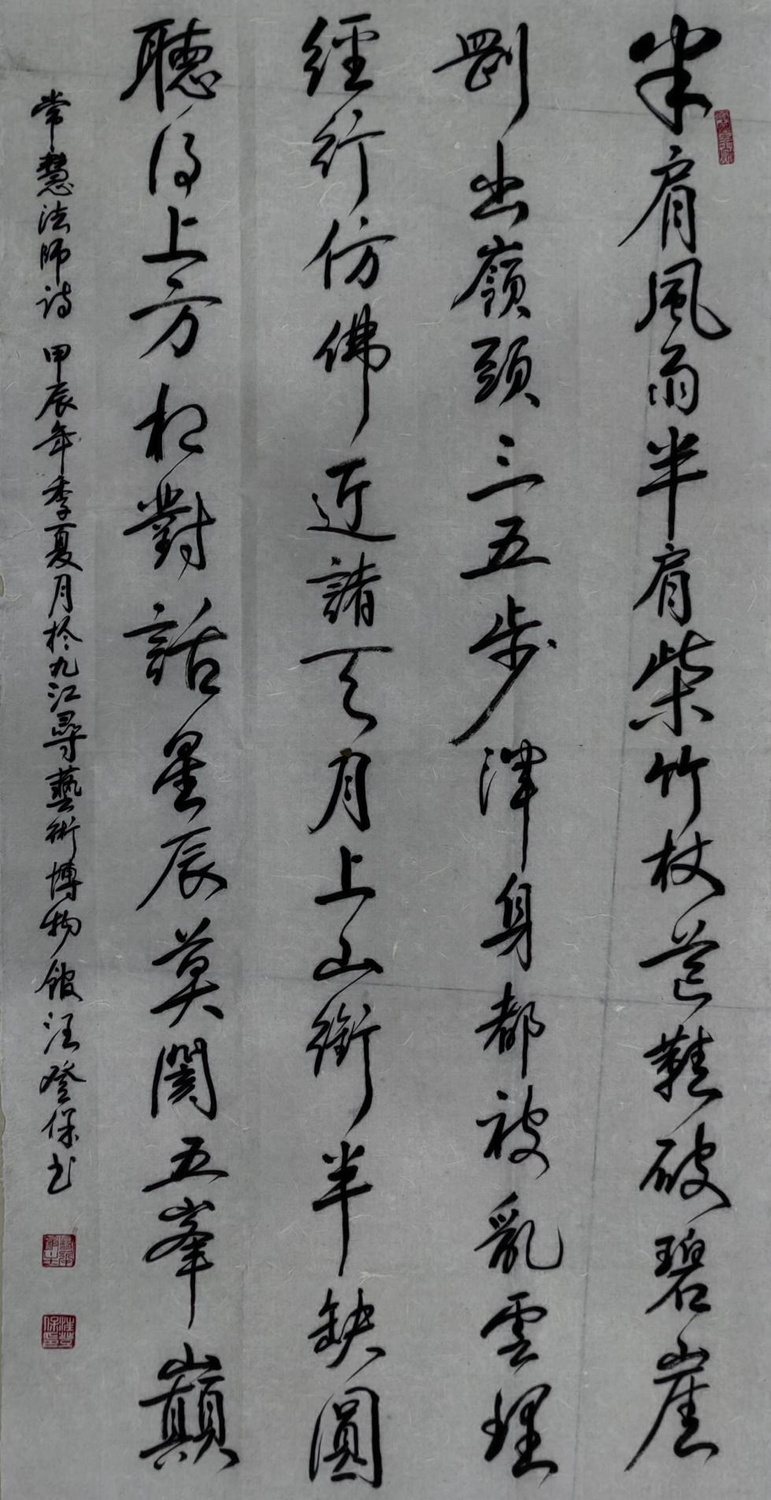 半肩風雨半肩柴竹杖芒鞋破碧崖
剛出嶺頭三五步渾身都被亂雲埋
經行仿佛近諸天月上山銜半缺圓
聽得上方相對話星辰莫閡五峯巔
常慧法師詩 甲辰年季夏月於九江尋藝術博物館汪登保书